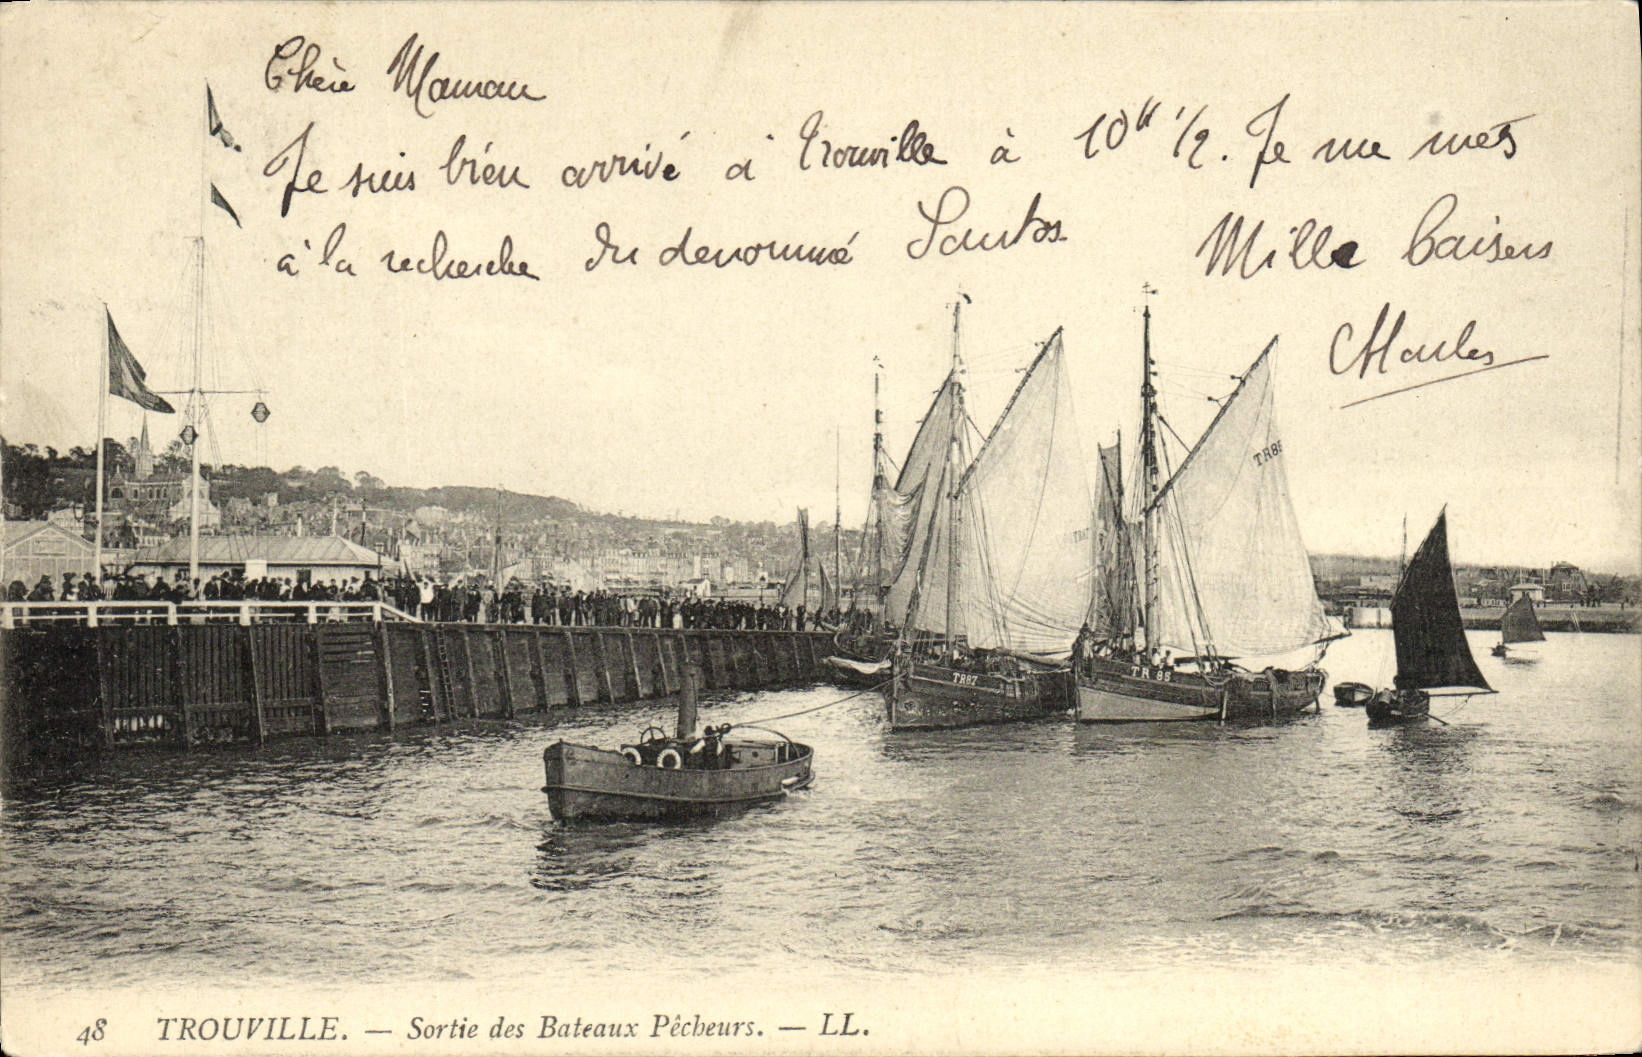 Chère Maman
Je suis bien arrivé à Trouville à 10h 1/2. Je me mets
à la recherche du denommé Santos Mille baisers
Charles
TR85
TR87
TR 85
48 TROUVILLE. — Sortie des Bateaux Pêcheurs. — LL.